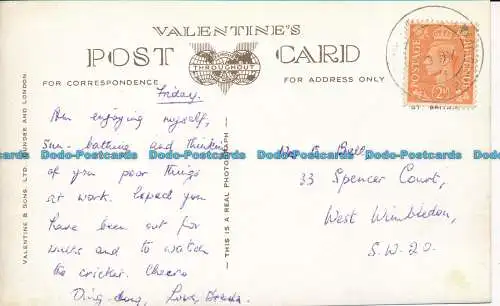 VALENTINE'S
POST CARD
THROUGHOUT THE WORLD
FOR CORRESPONDENCE
FOR ADDRESS ONLY
Friday.
Am enjoying myself,
sun-bathing and thinking
of you poor things
at work. Hoped you
have been out for
walks and to watch
the cricket. Cheers
Ding-dong, Love, Brenda.
Bell
33 Spencer Court,
West Wimbledon,
S.W.20.
VALENTINE & SONS, LTD. DUNDEE AND LONDON
THIS IS A REAL PHOTOGRAPH
POSTAGE REVENUE
2½D
Dodo-Postcards Dodo-Postcards Dodo-Postcards Dodo-Postcards